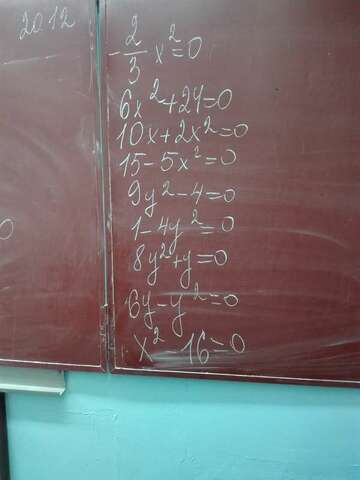 20.12
-2/3 x²=0
6x²+24=0
10x+2x²=0
15-5x²=0
9y²-4=0
1-4y²=0
8y²+y=0
6y-y²=0
x²-16=0
0